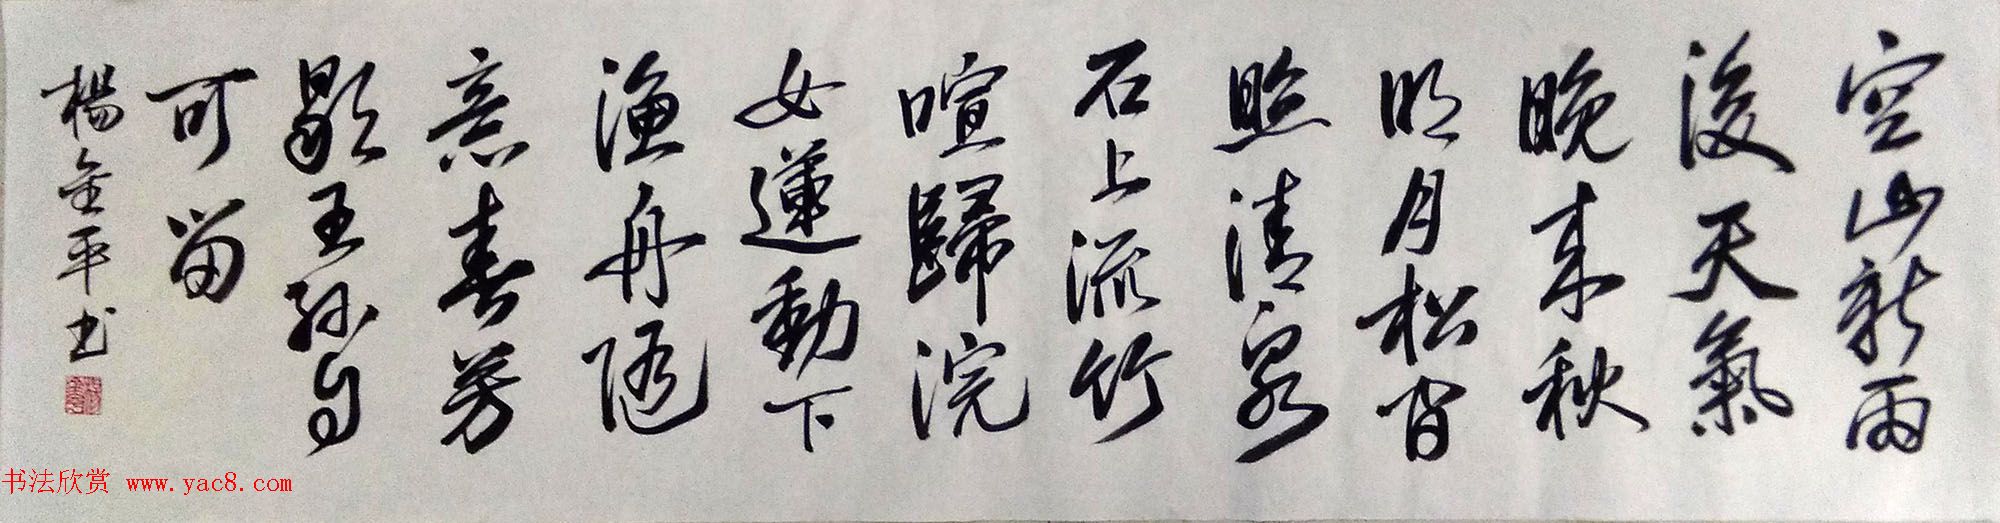 空山新雨
後天氣
晚来秋
明月松間
照清泉
石上流竹
喧歸浣
女蓮動下
漁舟随
意春芳
歇王孫自
可留
楊金平书
书法欣赏 www.yac8.com